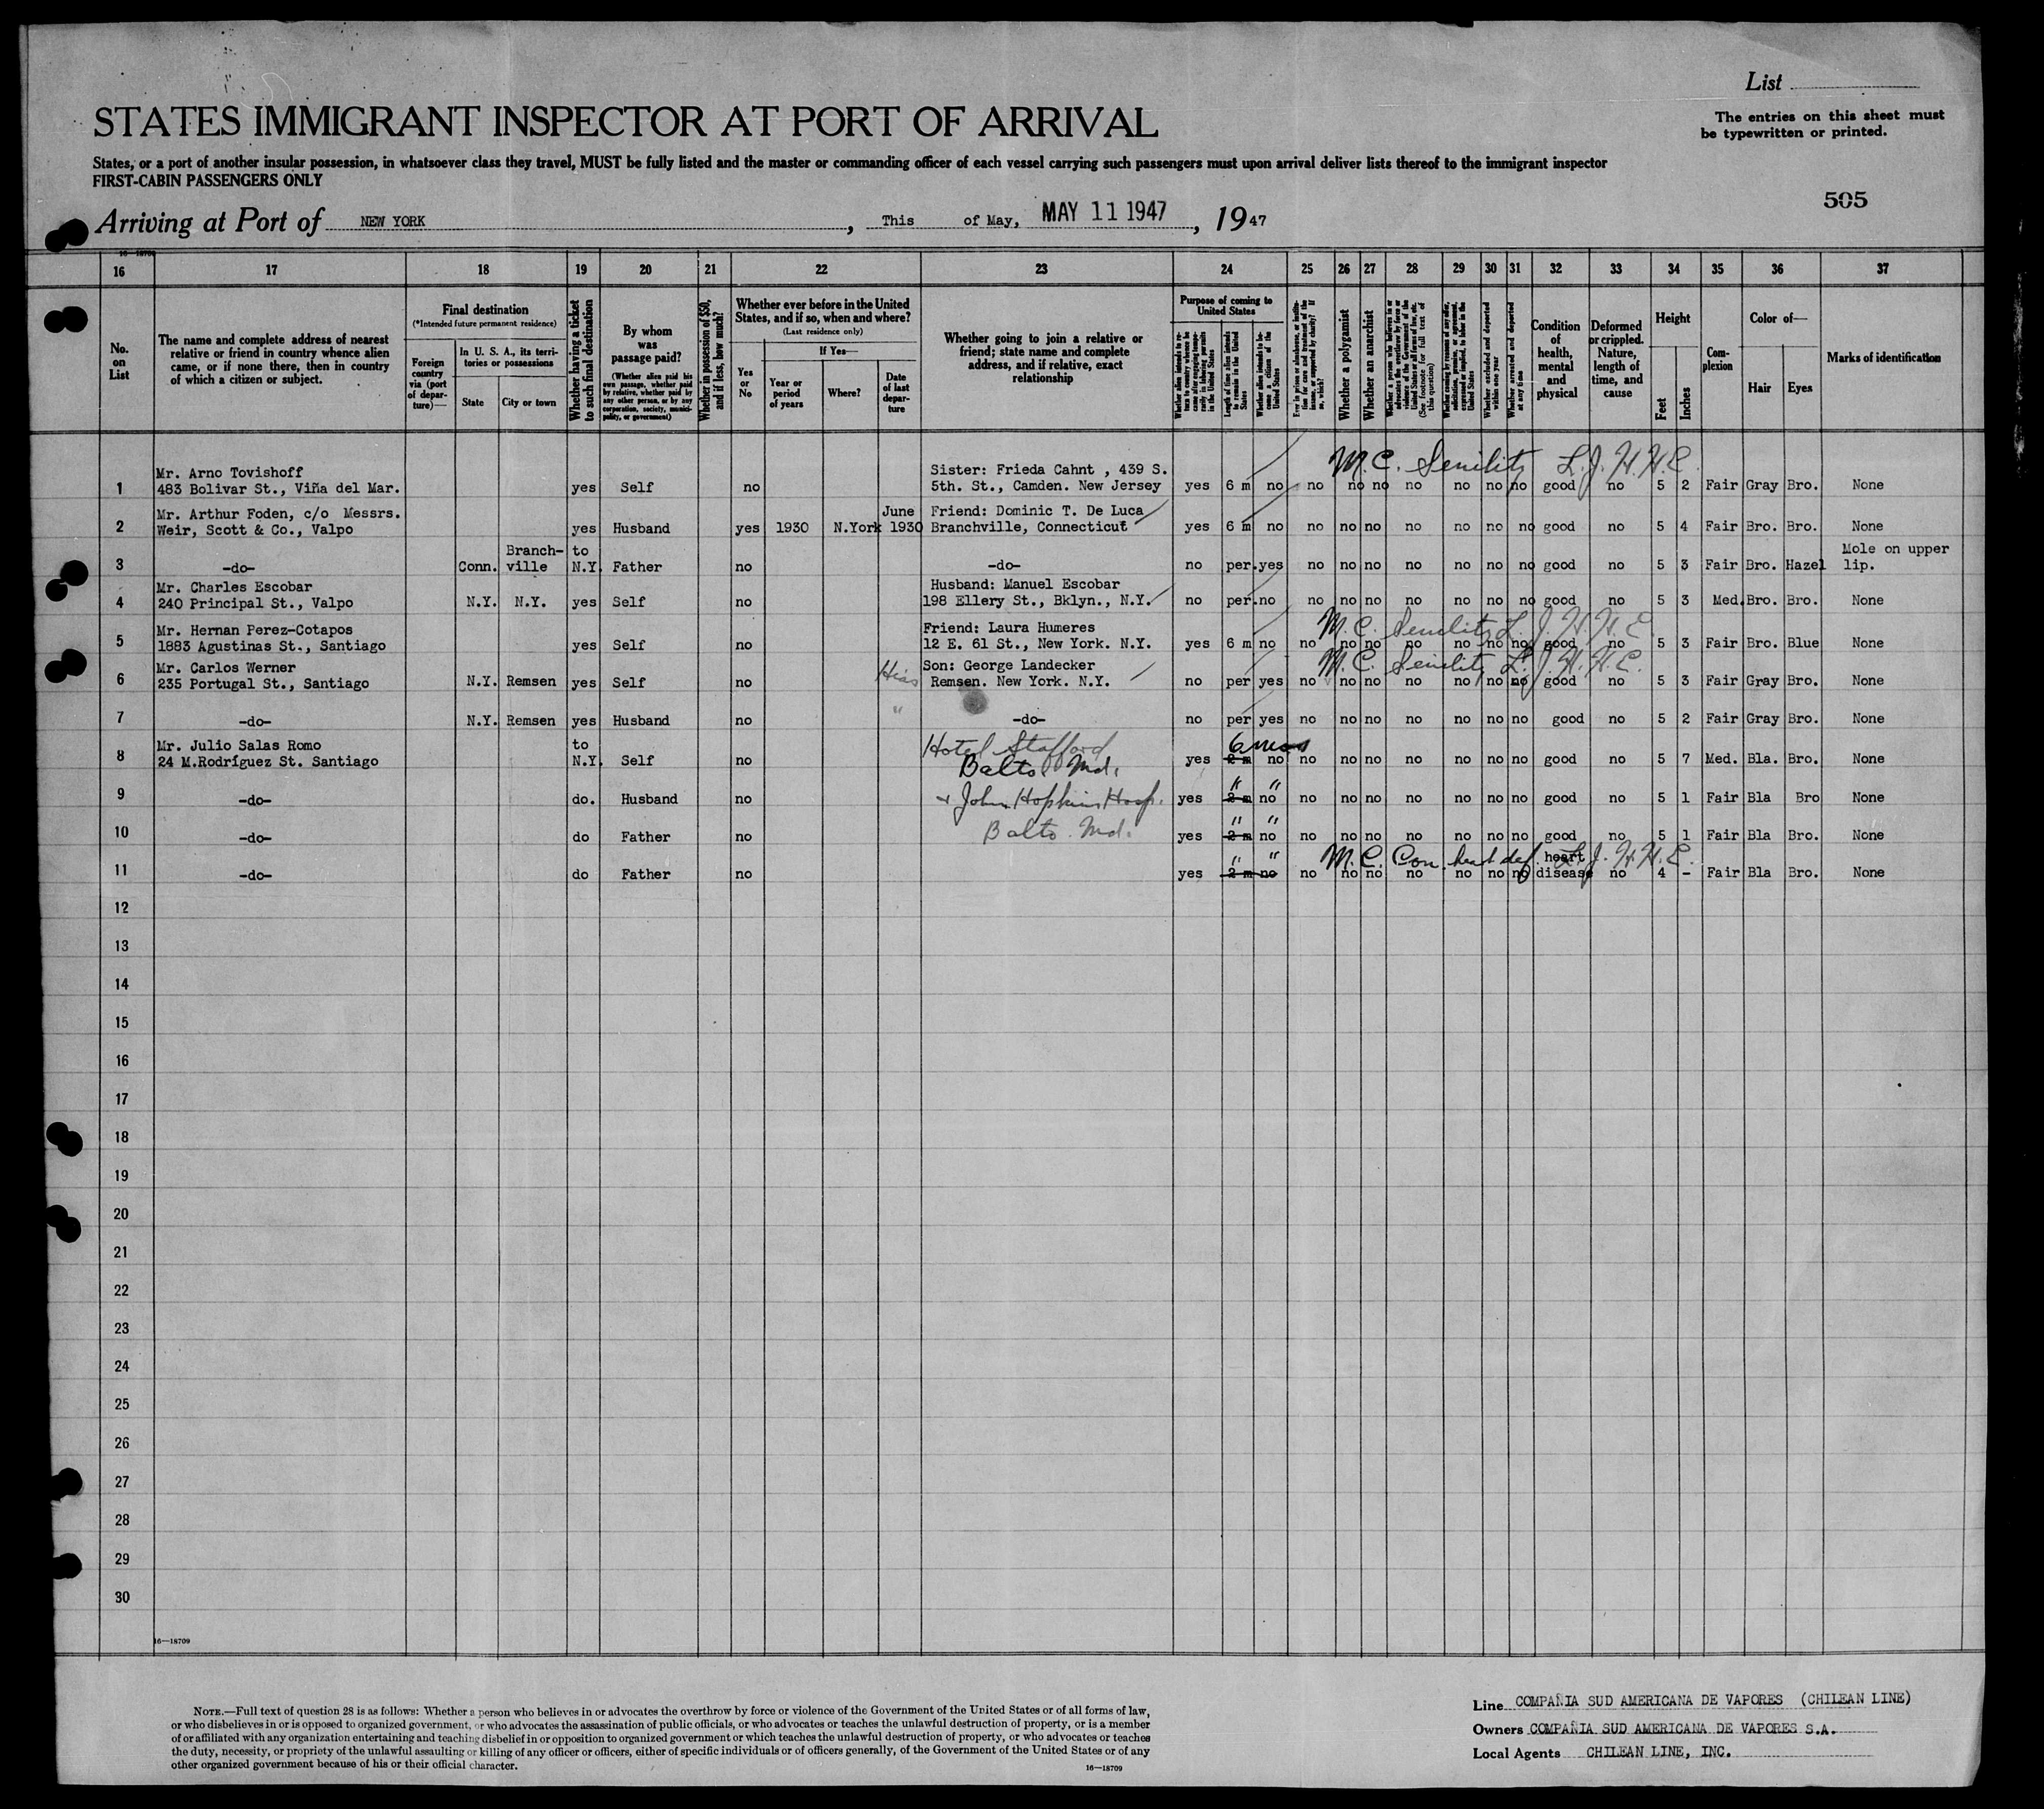 List
STATES IMMIGRANT INSPECTOR AT PORT OF ARRIVAL
The entries on this sheet must
be typewritten or printed.
States, or a port of another insular possession, in whatsoever class they travel, MUST be fully listed and the master or commanding officer of each vessel carrying such passengers must upon arrival deliver lists thereof to the immigrant inspector
FIRST-CABIN PASSENGERS ONLY
505
Arriving at Port of NEW YORK, This of May, MAY 11 1947, 1947
16 17 18 19 20 21 22 23 24 25 26 27 28 29 30 31 32 33 34 35 36 37
No. on List
The name and complete address of nearest relative or friend in country whence alien came, or if none there, then in country of which a citizen or subject.
Final destination
(*Intended future permanent residence)
Foreign country via (port of departure)—
In U. S. A., its territories or possessions
State
City or town
Whether having a ticket to such final destination
By whom was passage paid?
(Whether alien paid his own passage, whether paid by relative, whether paid by any other person, or by any corporation, society, municipality, or government)
Whether in possession of $50, and if less, how much?
Whether ever before in the United States, and if so, when and where?
(Last residence only)
Yes or No
If Yes—
Year or period of years
Where?
Date of last departure
Whether going to join a relative or friend; state name and complete address, and if relative, exact relationship
Purpose of coming to United States
Whether a polygamist
Whether an anarchist
Condition of health, mental and physical
Deformed or crippled. Nature, length of time, and cause
Height
Feet
Inches
Complexion
Color of—
Hair
Eyes
Marks of identification
M.C. Senility L.J.H.H.C.
Mr. Arno Tovishoff Sister: Frieda Cahnt , 439 S.
1 483 Bolivar St., Viña del Mar. yes Self no 5th. St., Camden. New Jersey yes 6 m no no no no no no no no good no 5 2 Fair Gray Bro. None
Mr. Arthur Foden, c/o Messrs. June Friend: Dominic T. De Luca
2 Weir, Scott & Co., Valpo yes Husband yes 1930 N.York 1930 Branchville, Connecticut yes 6 m no no no no no no no no good no 5 4 Fair Bro. Bro. None
Branch- to Mole on upper
3 -do- Conn. ville N.Y. Father no -do- no per. yes no no no no no no no good no 5 3 Fair Bro. Hazel lip.
Mr. Charles Escobar Husband: Manuel Escobar
4 240 Principal St., Valpo N.Y. N.Y. yes Self no 198 Ellery St., Bklyn., N.Y. no per. no no no no no no no no good no 5 3 Med. Bro. Bro. None
Mr. Hernan Perez-Cotapos Friend: Laura Humeres M.C. Senility L.J.H.H.C.
5 1883 Agustinas St., Santiago yes Self no 12 E. 61 St., New York. N.Y. yes 6 m no no no no no no no no good no 5 3 Fair Bro. Blue None
Mr. Carlos Werner Hias Son: George Landecker M.C. Senility L.J.H.H.C.
6 235 Portugal St., Santiago N.Y. Remsen yes Self no Remsen. New York. N.Y. no per yes no no no no no no no good no 5 3 Fair Gray Bro. None
7 -do- N.Y. Remsen yes Husband no " -do- no per yes no no no no no no no good no 5 2 Fair Gray Bro. None
Mr. Julio Salas Romo to Hotel Stafford 6 mos
8 24 M.Rodríguez St. Santiago N.Y. Self no Balto Md. yes 2 m no no no no no no no no good no 5 7 Med. Bla. Bro. None
" "
9 -do- do. Husband no + John Hopkins Hosp. yes 2 m no no no no no no no no good no 5 1 Fair Bla Bro None
" "
10 -do- do Father no Balto. Md. yes 2 m no no no no no no no no good no 5 1 Fair Bla Bro. None
" " M.C. Con. heart def. heart L.J.H.H.C.
11 -do- do Father no yes 2 m no no no no no no no no disease no 4 - Fair Bla Bro. None
12
13
14
15
16
17
18
19
20
21
22
23
24
25
26
27
28
29
30
16—18709
NOTE.—Full text of question 28 is as follows: Whether a person who believes in or advocates the overthrow by force or violence of the Government of the United States or of all forms of law,
or who disbelieves in or is opposed to organized government, or who advocates the assassination of public officials, or who advocates or teaches the unlawful destruction of property, or is a member
of or affiliated with any organization entertaining and teaching disbelief in or opposition to organized government or which teaches the unlawful destruction of property, or who advocates or teaches
the duty, necessity, or propriety of the unlawful assaulting or killing of any officer or officers, either of specific individuals or of officers generally, of the Government of the United States or of any
other organized government because of his or their official character.
16—18709
Line COMPAÑIA SUD AMERICANA DE VAPORES (CHILEAN LINE)
Owners COMPAÑIA SUD AMERICANA DE VAPORES S.A.
Local Agents CHILEAN LINE, INC.